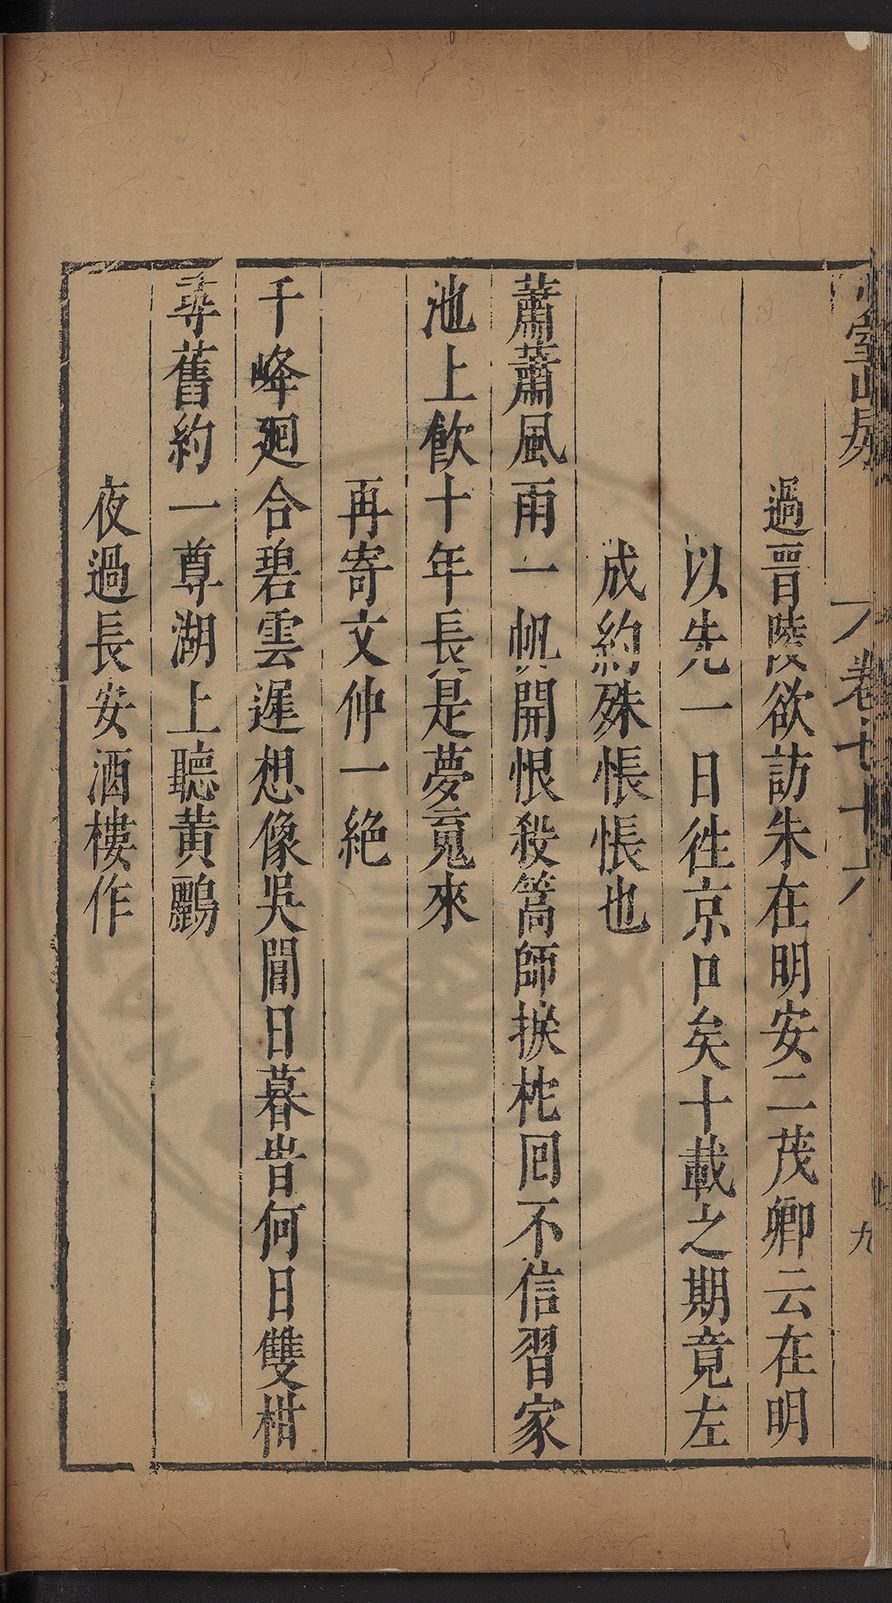 室山房
卷七十六
九
過晉陵欲訪朱在明安二茂卿云在明
以先一日徃京口矣十載之期竟左
成約殊悵悵也
蕭蕭風雨一帆開恨殺篙師捩柁囘不信習家
池上飲十年長是夢䰟來
再寄文仲一絶
千峰廻合碧雲遲想像吳閶日暮旹何日雙柑
尋舊約一尊湖上聽黄鸝
夜過長安酒樓作